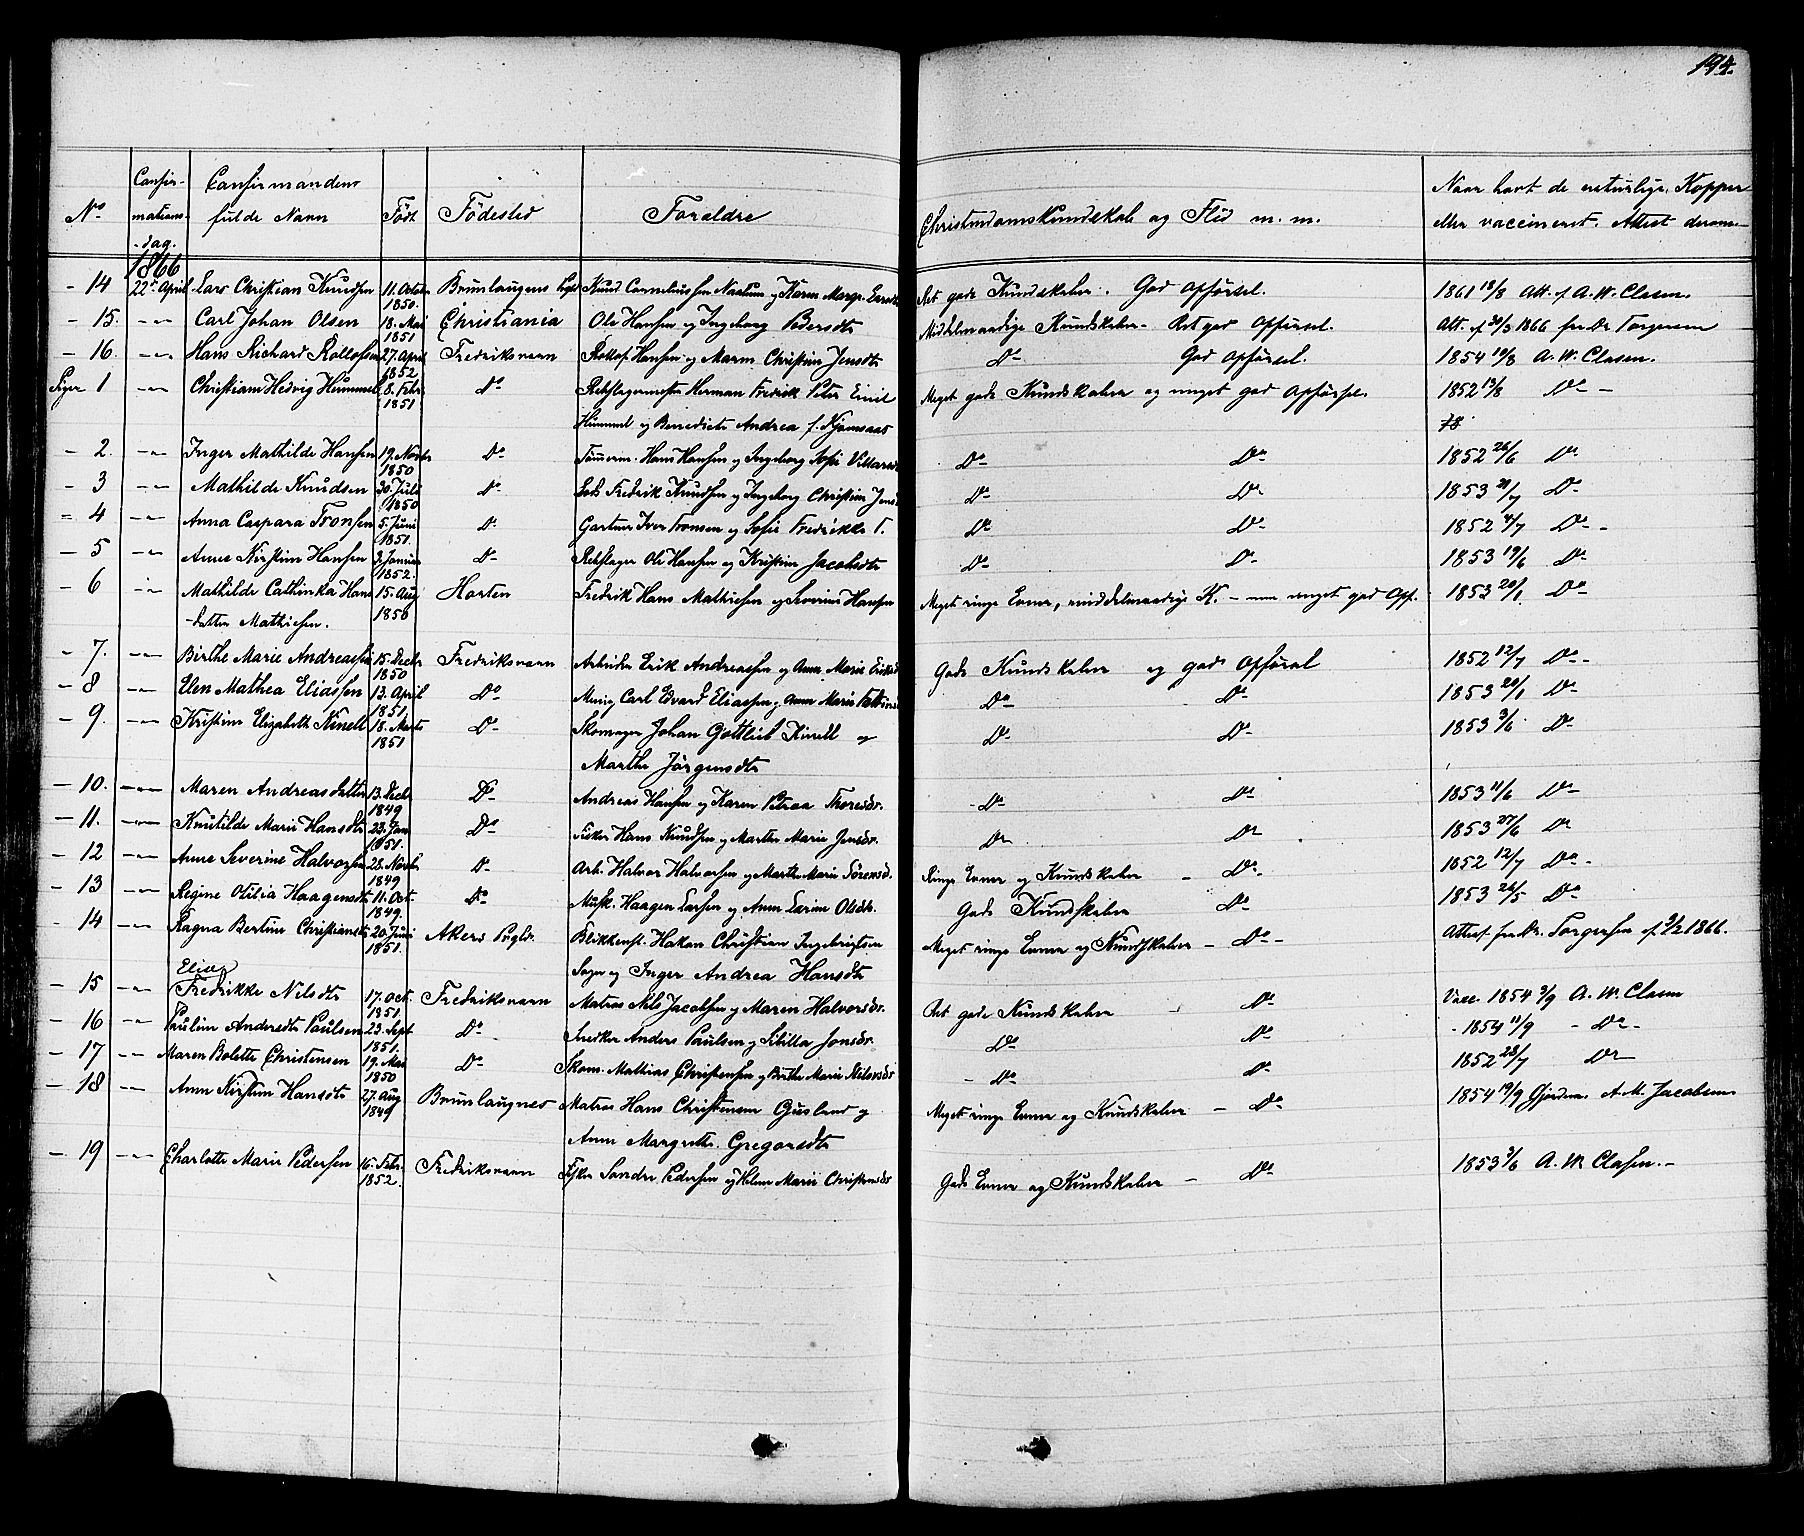 194.
No
Confir-
mations-
-dag.
Confirmandens
fulde Navn
Født
Fødested
Foraldre
Christendomskundskab og Flid m. m.
Naar havt de naturlige Kopper
eller vaccineret. Attest derom
1866
- 14 22de April Lars Christian Knudsen 11. October 1850. Brunlaugens Pgld Knud Corneliussen Naalum og Karen Margr. Ret gode Kundskaber. God Opførsel. 1861 18/8 Att. f. A. W. Clasen.
- 15. -"- Carl Johan Olsen 18. Mai 1851 Christiania Ole Hansen og Ingeborg Pedersdtr Middelmaadige Kundskaber. Ret god Opførsel. Att. af 30/3 1866 fra Dr Torgersen
- 16. -"- Hans Richard Rollofsen 27. April 1852 Fredriksværn Rollof Hansen og Maren Christine Jensdtr Do God Opførsel. 1854 19/8 A. W. Clasen.
Piger 1 -"- Christiane Hedvig Hummel 8. Febr 1851 Do Rebslagermester Herman Fredrik Peter Emil Meget gode Kundskaber og meget god Opførsel. 1852 13/8 Do -
Hummel og Benedicte Andrea f.
- 2. -"- Inger Mathilde Hansen 19. Novbr 1850 Do Tømmerm. Hans Hansen og Ingeborg Sofie Do Do 1852 26/6 Do
- 3 -"- Mathilde Knudsen 30. Juli 1850 Do Fredrik Knudsen og Ingeborg Christine Do Do 1853 21/7 Do
- 4 -"- Anna Caspara Tronsen 5. Juni 1851. Do Gartner Iver Tronsen og Sofie Fredrikke T. Do Do 1852 4/7 Do -
- 5 -"- Anne Kirstine Hansen 3. Januar 1852. Do Rebslager Ole Hansen og Kristine Jacobsdtr Do Do 1853 19/6 Do
- 6 -"- Mathilde Cathinka Hans 15. Aug 1850 Horten Fredrik Hans Mathiesen og Severine Hansen Meget ringe Evner, middelmaadige K. - men meget god Opf. 1853 20/1. Do
-datter Mathiesen.
- 7. -"- Birthe Marie Andreassen 15. Decbr 1850 Fredriksværn Arbeider Erik Andreassen og Anne Marie Gode Kundskaber og god Opførsel 1852 12/7 Do -
- 8 -"- Elen Mathea Eliassen 13. April 1851. Do Menig Carl Edvard Eliassen og Anne Marie Do Do 1853 20/1 Do
- 9. -"- Kristine Elisabeth Kinell 18. Marts 1851 Do Skomager Johan Gottlieb Kinell og Do Do 1853 3/6 Do
Marthe Jørgensdtr
- 10. -"- Maren Andreasdatter 13. Decbr 1849 Do Andreas Hansen og Karen Petrea Thoresdr. Do Do 1853 11/6 Do
- 11. -"- Knutilde Marie Hansdtr 23. Jan 1851. Do Fisker Hans Knudsen og Marthe Marie Jensdr. Do Do 1853 27/6 Do
- 12 -"- Anne Severine Halvorsen 28. Novbr 1849 Do Arb. Halvor Halvorsen og Marthe Marie Sørensd. Ringe Evner og Kundskaber - Do 1852 12/7 Do -
- 13 -"- Regine Otilia Haagensdtr 11. Oct. 1849. Do Musk. Haagen Larsen og Anne Karine Olsdtr. Gode Kundskaber Do 1853 26/5 Do
- 14 -"- Ragna Bertine Christiansdtr 20. Juni 1851. Akers Prgld. Blikkensl. Hakon Christian Ingebrigtsen Meget ringe Evner og Kundskaber - Do - Attest fra Dr. Torgersen af 9/2 1866.
Sogn og Inger Andrea Hansdtr
Elise
- 15 -"- Fredrikke Nilsdtr 17. Oct. 1851. Fredriksværn Matros Nils Jacobsen og Maren Halvorsdr. Ret gode Kundskaber - Do Vacc. 1854 9/9 A. W. Clasen
- 16 -"- Pauline Andresdtr Paulsen 23. Sept 1851. Do Snedker Anders Paulsen og Sibilla Jonsdr. Do Do - 1854 11/9 - Do -
- 17 -"- Maren Bolette Christensen 19. Mai 1850 Do Skom. Mathias Christensen og Birthe Marie Nilsdtr - Do - Do 1852 23/7 Do
- 18 -"- Anne Kirstine Hansdtr 27. Aug 1849 Brunlaugnes Matros Hans Christensen Gusland og Meget ringe Evner og Kundskaber - Do 1854 19/9 Gjordem. A. M. Jacobsen
Anne Margrethe Gregorsdtr
- 19 -"- Charlotte Marie Pedersen 16. Febr. 1852. Fredriksværn Fisker Sondre Pedersen og Helene Marie Christensdr Gode Evner og Kundskaber - Do 1853 3/6 A. W. Clasen. -